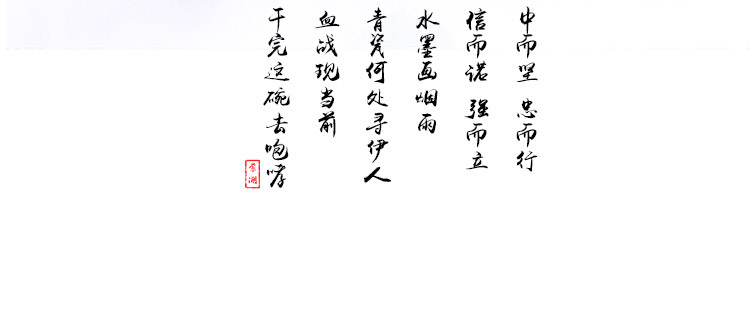 中而坚 忠而行
信而诺 强而立
水墨画烟雨
青瓷何处寻伊人
血战现当前
干完这碗去咆哮